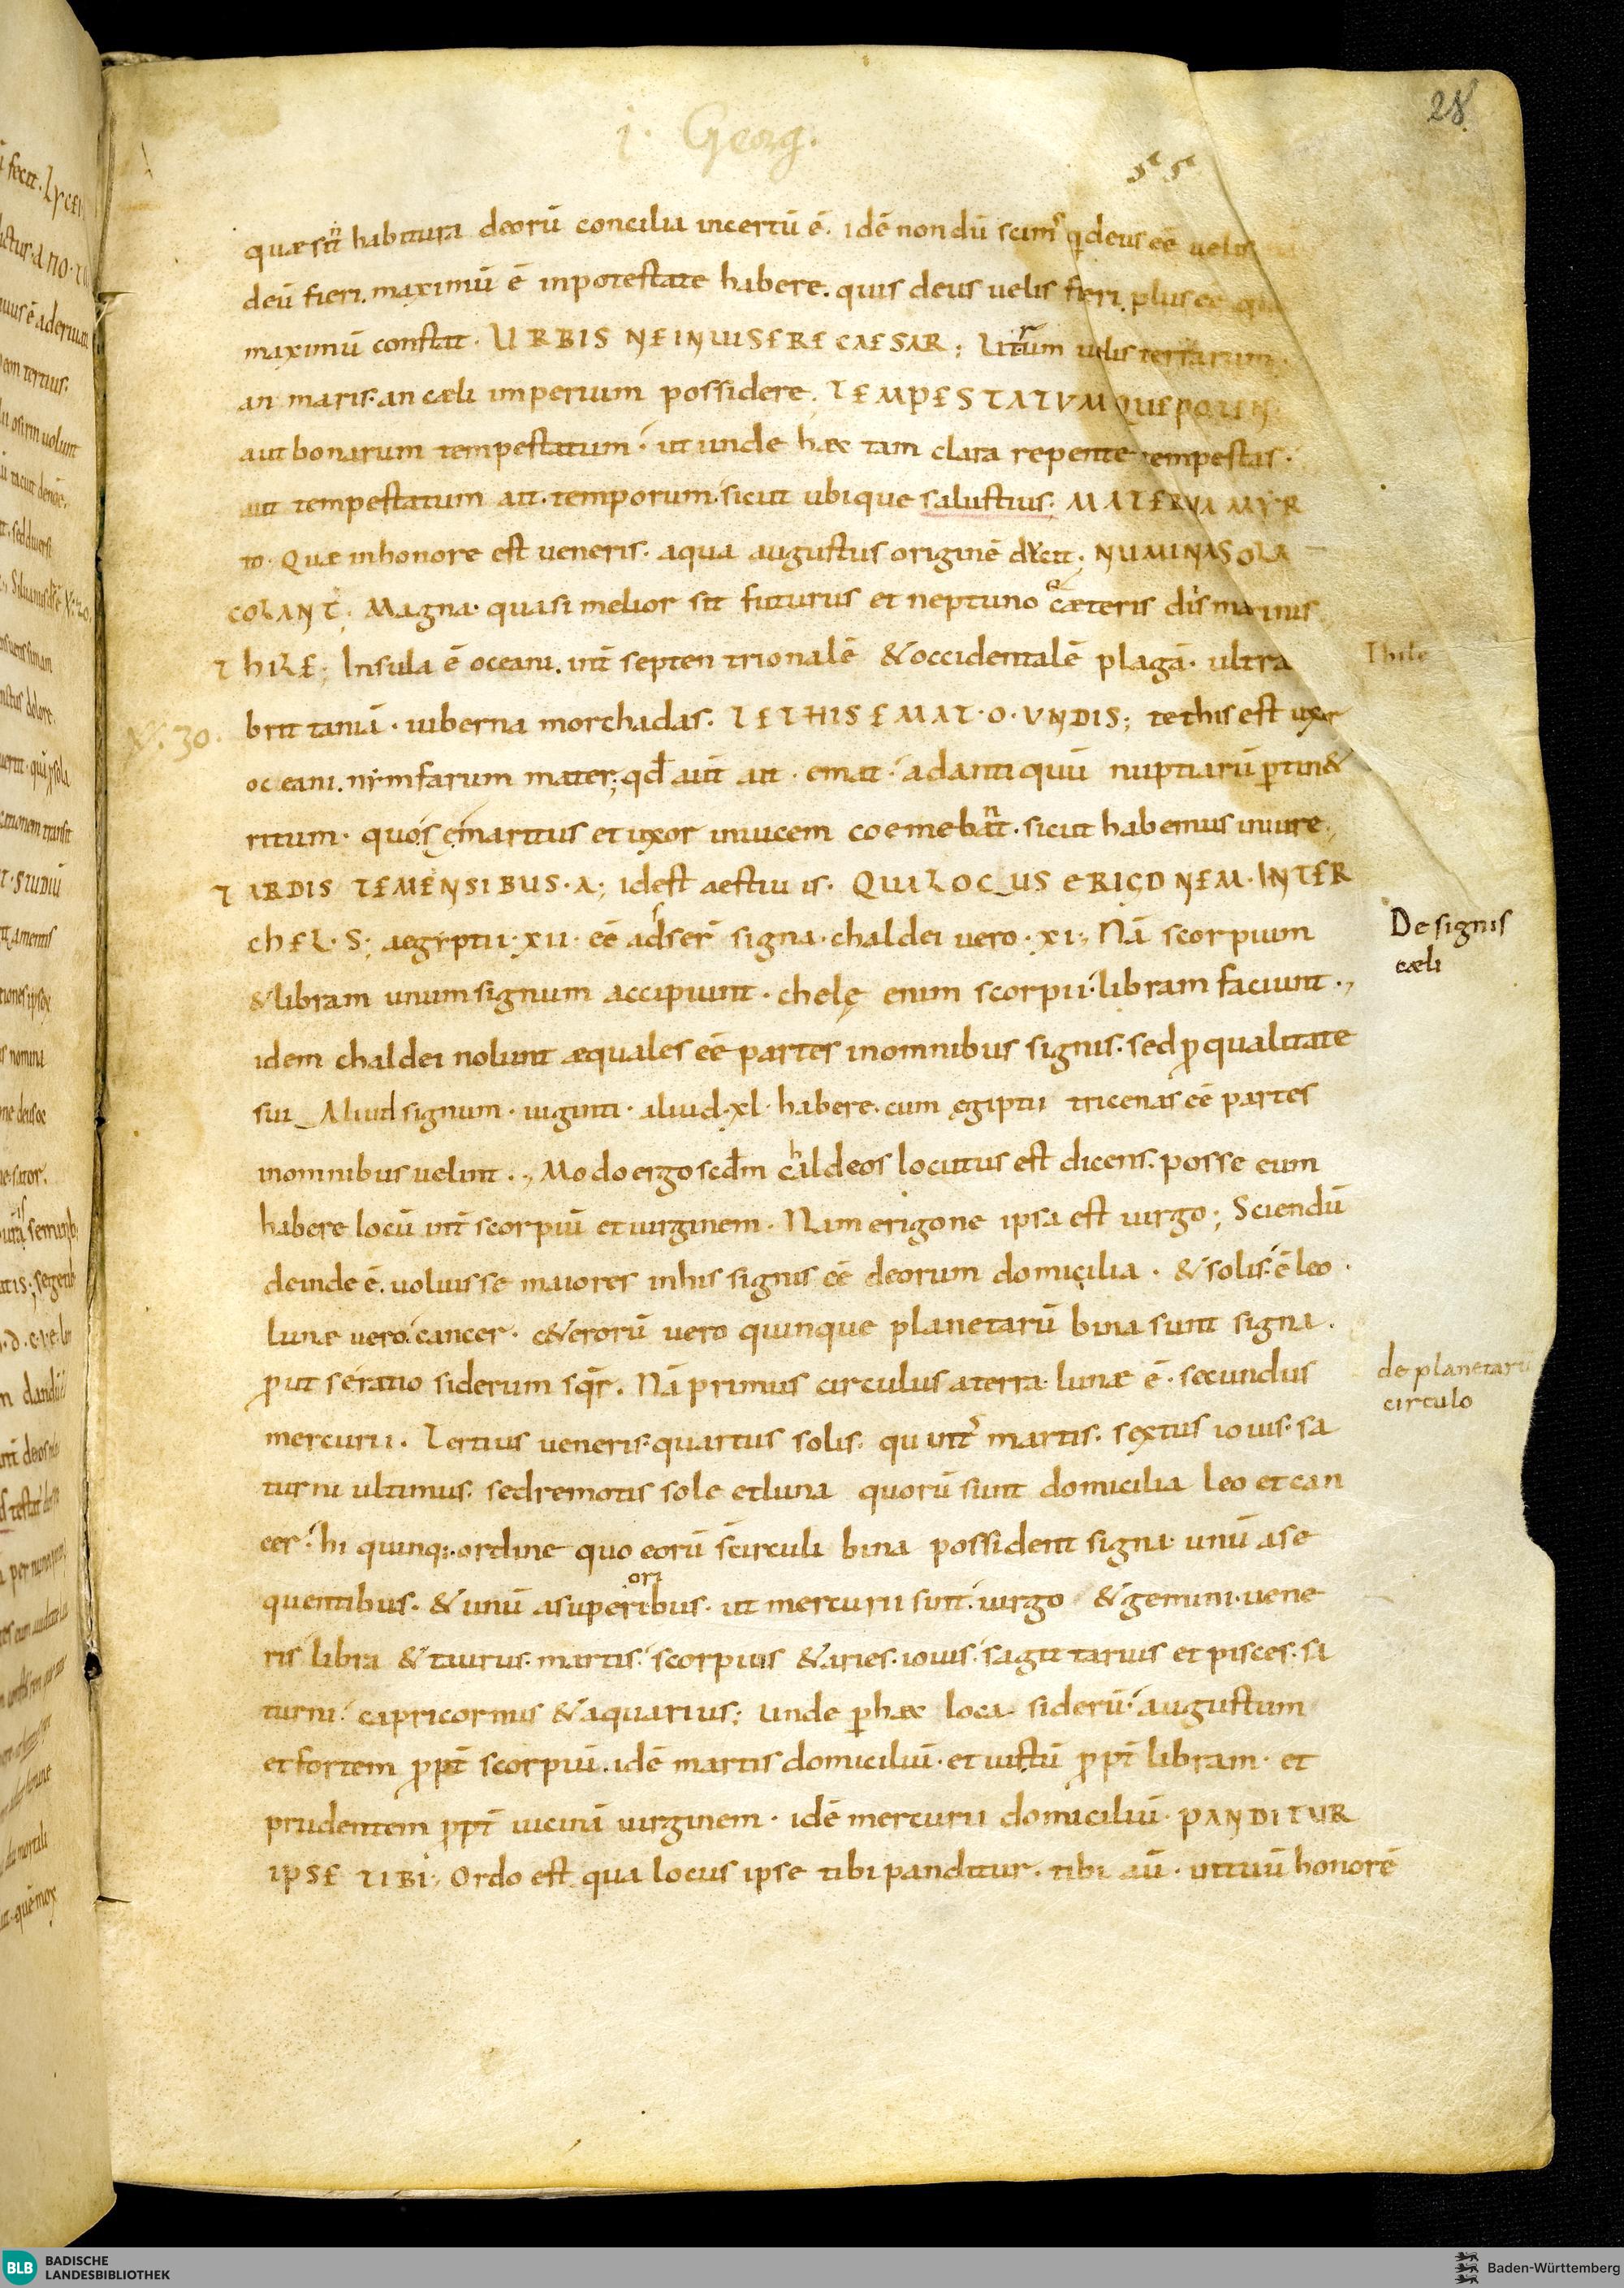 28
j. Georg.
quæ sint habitura deorū concilia incertū ē. idē nondū scim᷒ q̄ deus eē uelis
deū fieri. maximū ē inpotestate habere. quis deus uelis fieri. plus eē
maximū constat. URBIS NE INUISERE CAESAR; Utrum uelis terrarum.
an maris. an cæli imperium possidere. TEMPESTATUMQUE POTEN
aut bonarum tempestatum. ut unde hæc tam clara repente tempestas.
aut tempestatum ait. temporum. sicut ubique salustius. MATERNA MYR
to. Quæ inhonore est ueneris. aqua augustus originē dicit; NUMINA SOLA
COLANT. Magna. quasi melior sit futurus et neptuno & cæteris dis marinis
THILE; Insula ē oceani. int̄ septentrionalē & occidentalē plagā. ultra
Thile
V. 30.
brittaniā. iuberna morchadas. TETHIS EMAT. O. UNDIS; tethis est uxor
oceani. nimfarum mater; qđ aut̄ ait. emat. adantiquū nuptiarū ꝑtin&
ritum. quo se maritus et uxor inuicem coemebant. sicut habemus iniure.
TARDIS TE MENSIBUS. A; idest aestiuis. QUA LOCUS ERIGONEM. INTER
CHEL. S; aegyptii. xii. eē adser̄ signa. chaldei uero. xi; Nā scorpium
De signis
cæli
& libram unum signum accipiunt. chelę enim scorpii. libram faciunt.,
idem chaldei nolunt æquales eē partes inomnibus signis. sed ꝓ qualitate
sui Aliud signum. uiginti. aliud. xl. habere. cum egiptii tricenas eē partes
inomnibus uelint., Modo ergo scđm chaldeos locutus est dicens. posse eum
habere locū int̄ scorpiū et uirginem. Nam erigone ipsa est uirgo; Sciendū
deinde ē. uoluisse maiores inhis signis eē deorum domicilia. & solis. ē leo.
lunæ uero. cancer. c&erorū uero quinque planetarū bina sunt signa.
ꝓut se ratio siderum sqr̄. Nā primus circulus aterra. lunæ ē. secundus
de planetarū
circulo
mercurii. Tertius ueneris. quartus solis. quint᷒ martis. sextus iouis. sa
turni ultimus. sed remotis sole et luna quorū sunt domicilia leo et can
cer. hi quinq;. ordine quo eorū s circuli bina possident signa. unū ase
quentibus. & unū asuperioribus. ut mercurii sint. uirgo & gemini. uene
ris libra & taurus. martis. scorpius & aries. iouis. sagittarius et pisces. sa
turni. capricornus & aquarius; unde ꝑ hæc loca siderū. augustum
et fortem ꝓpt̄ scorpiū. idē martis domiciliū. et iustū ꝓpt̄ libram. et
prudentem ꝓpt̄ uicinā uirginem. idē mercurii domiciliū. PANDITUR
IPSE TIBI; Ordo est qua locus ipse tibi panditur. tibi aū. intuū honorē
BLB BADISCHE
LANDESBIBLIOTHEK
Baden-Württemberg